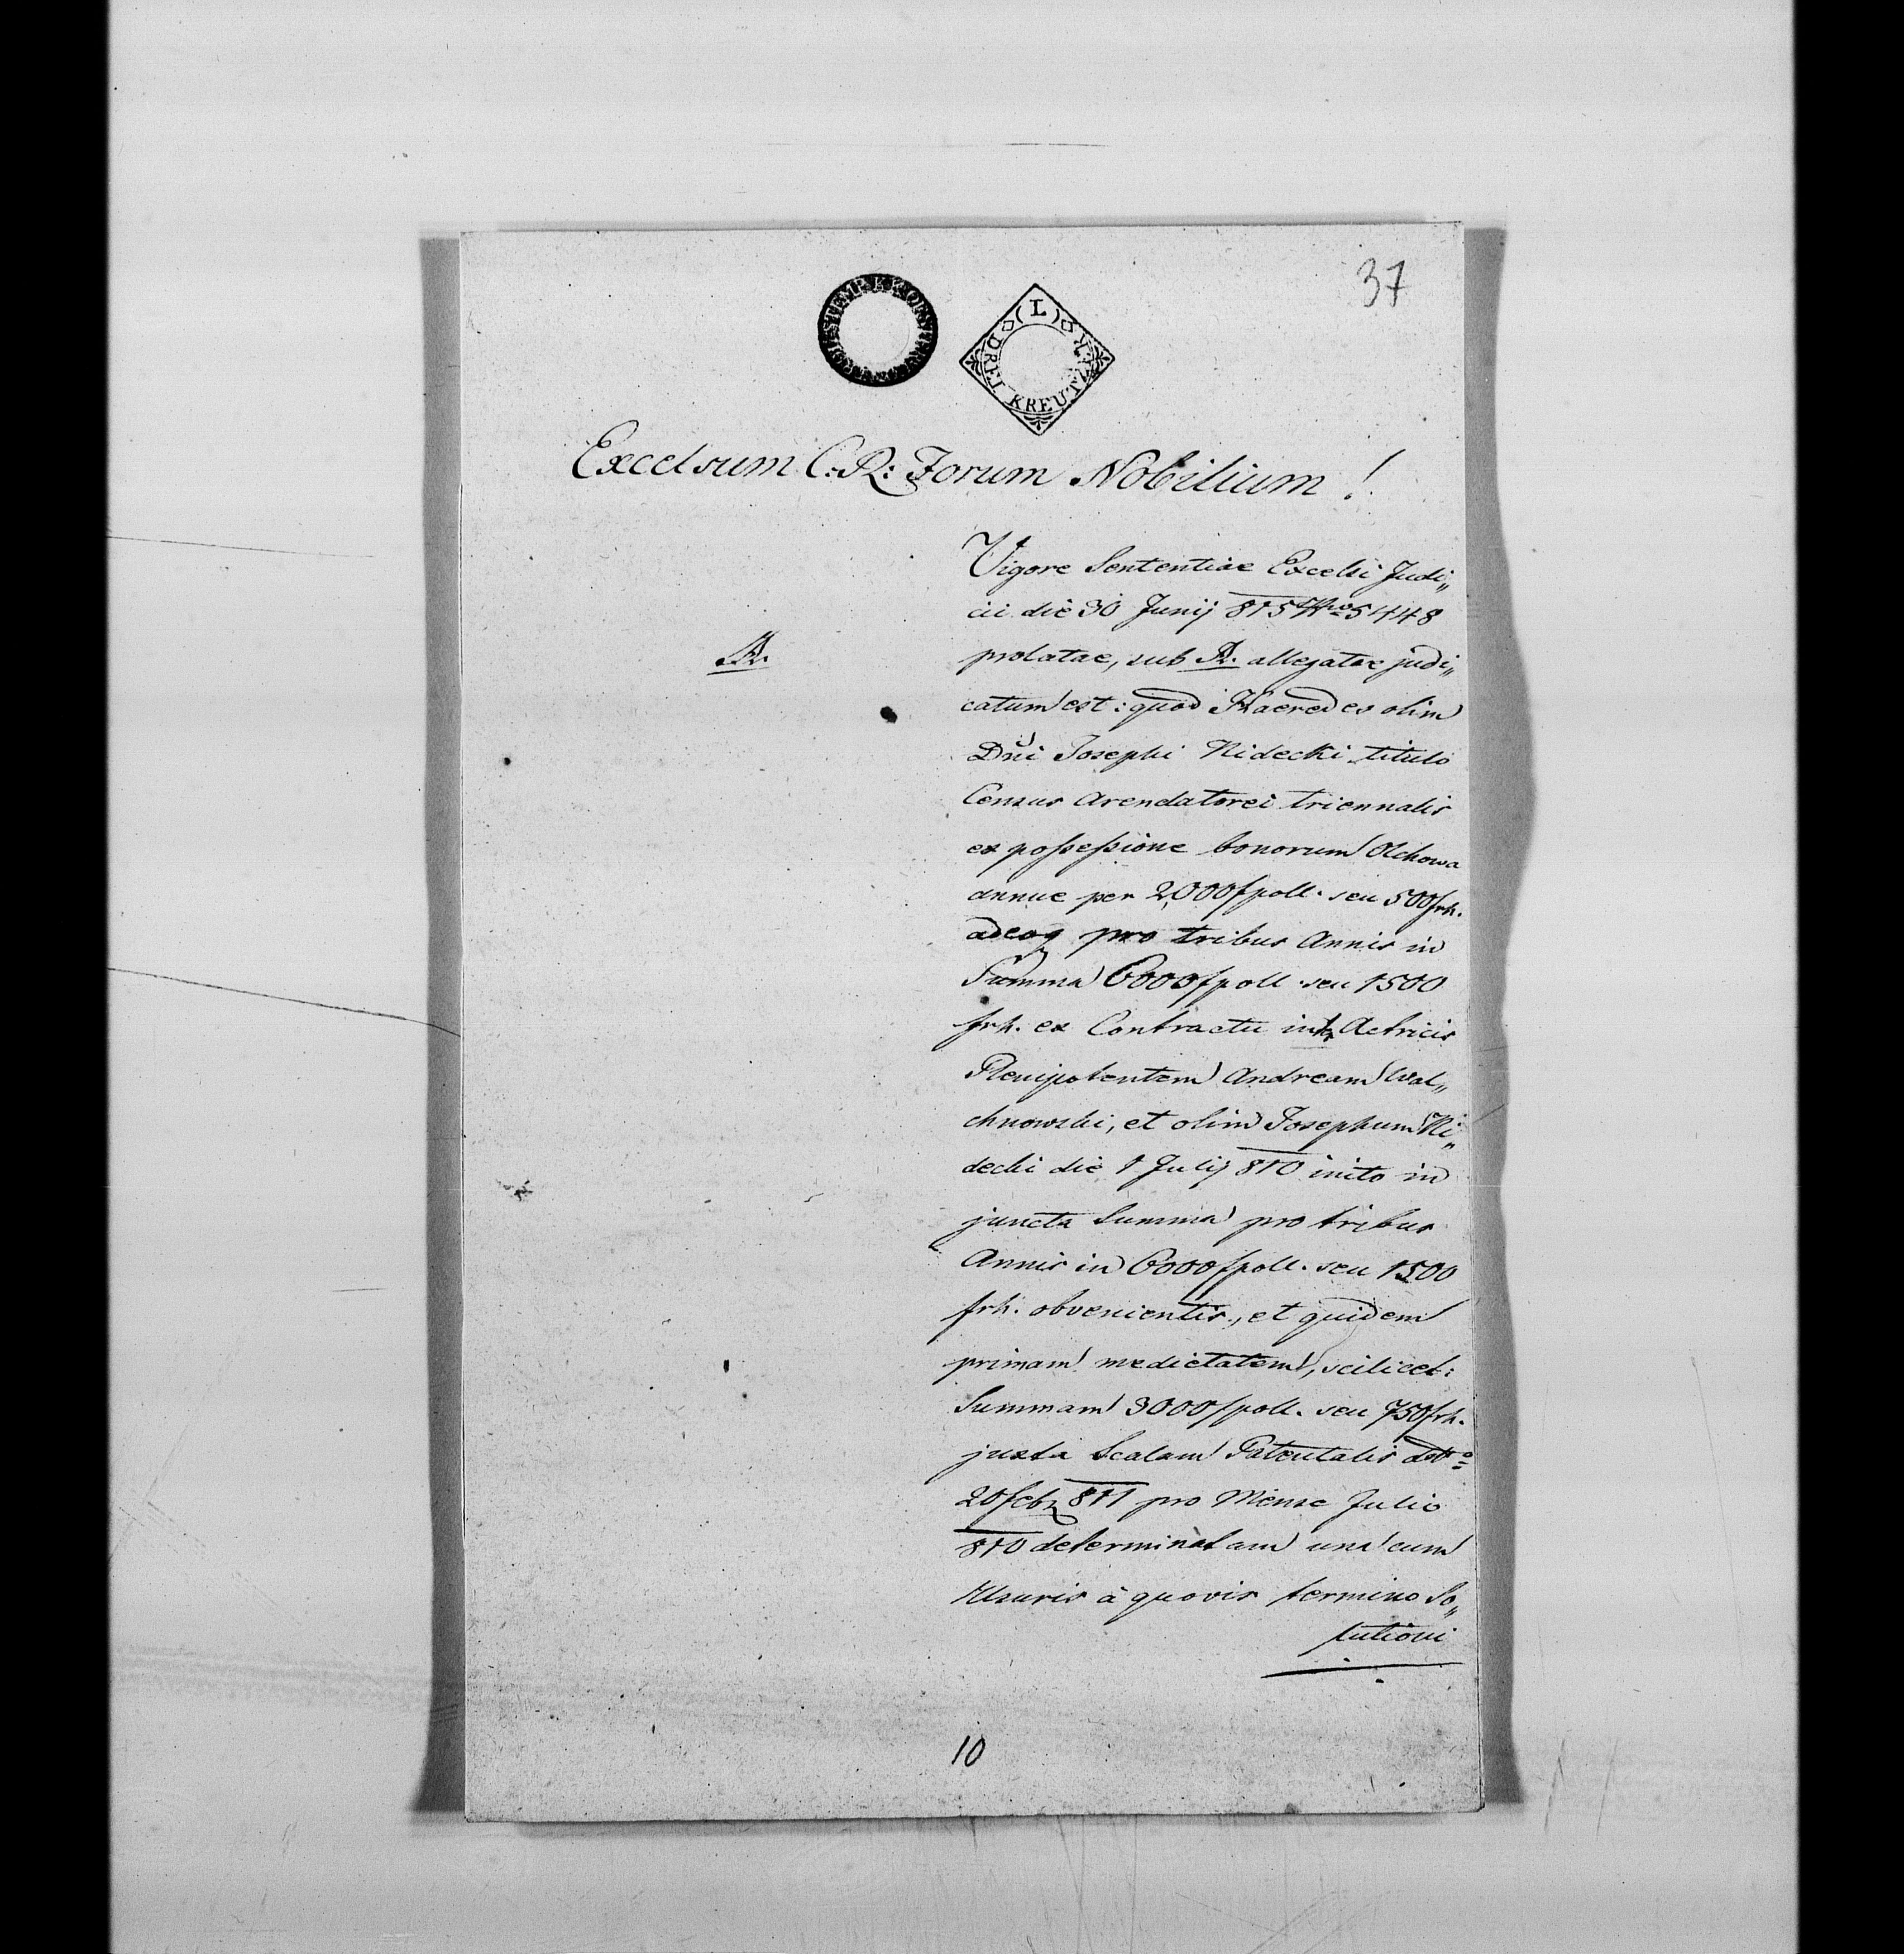 37
STEMP. K.K. OESTERR
(L)
DREI KREUTZER
Excelsum C: R: Forum Nobilium!
Vigore Sententiae Excelsi Judi„
cii die 30 Junij 815 Nro 5448
A.
prolatae, sub A. allegatae judi„
catum est: quod Haeredes olim
Dni Josephi Nidecki titulo
Census Arendatorei triennalis
ex possessione bonorum Olchowa
annue per 2000 f poll. seu 500 frh.
adeoq pro tribus Annis in
Summa 6000 f poll seu 1500
frh. ex Contractu intr Actricis
Plenipotentem Andream Wol„
chnowski, et olim Josephum Ni„
decki die 1 Julij 810 inito in
juncta Summa pro tribus
Annis in 6000 f poll. seu 1500
frh. obvenientis, et quidem
primam medietatem, scilicet:
Summam 3000 f poll. seu 750 frh.
juxta Scalam Patentalis ddto
20 febr 811 pro Mense Julio
810 determinatam una cum
Usuris à quovis termino So„
lutioni
10